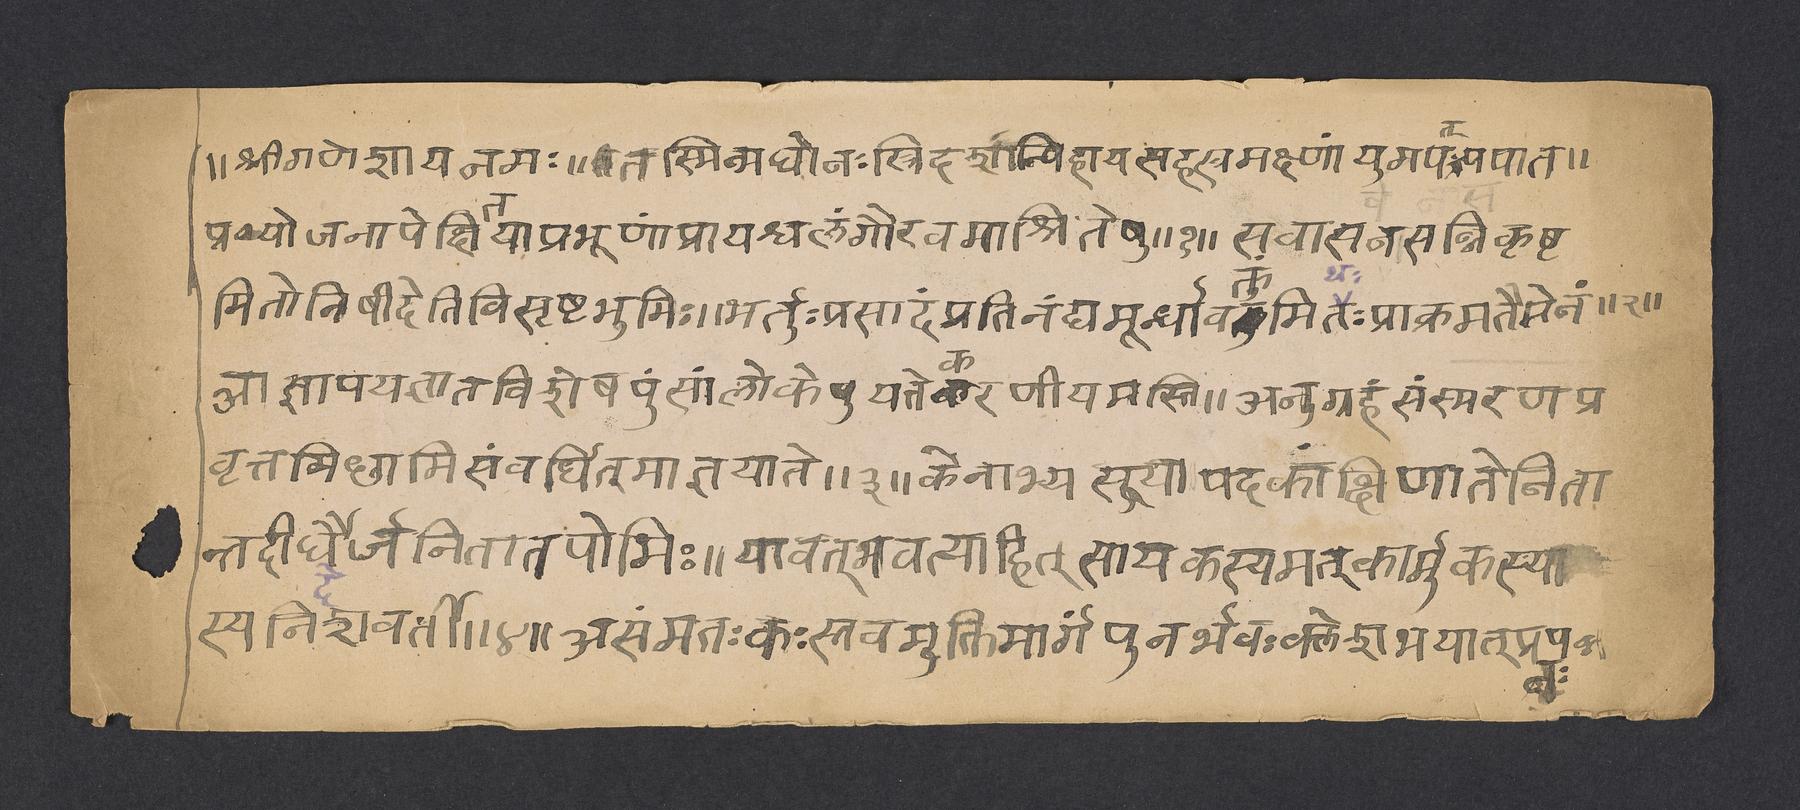 ॥श्रीगणेशायनमः॥तस्मिन्मघोनःस्त्रिदशान्विहायसहस्रमक्ष्णांयुगपत्पपात॥
प्रयोजनापेक्षितयाप्रभूणांप्रायश्चलंगौरवमाश्रितेषु॥१॥सवासनसन्निकृष्ट
मितोनिषीदेतिविसृष्टभुमिः॥भर्तुःप्रसादंप्रतिनंद्यमूर्ध्नावक्तुंमिथःप्राक्रमतैमेनं॥२॥
आज्ञापयज्ञातविशेषपुंसांलोकेषुयत्तेकरणीयमस्ति॥अनुग्रहंसंस्मरणप्र
वृत्तमिछामिसंवर्धितुमाज्ञयाते॥३॥केनाभ्यसूयापदकांक्षिणातेनिता
न्तदीर्घैर्जनितातपोभिः॥यावत्भवत्याहितसायकस्यमत्कार्मुकस्या
स्यनिदेशवर्ती॥४॥असंमतःकःस्तवमुक्तिमार्गंपुनर्भवःक्लेशभयात्प्रप
न्नः